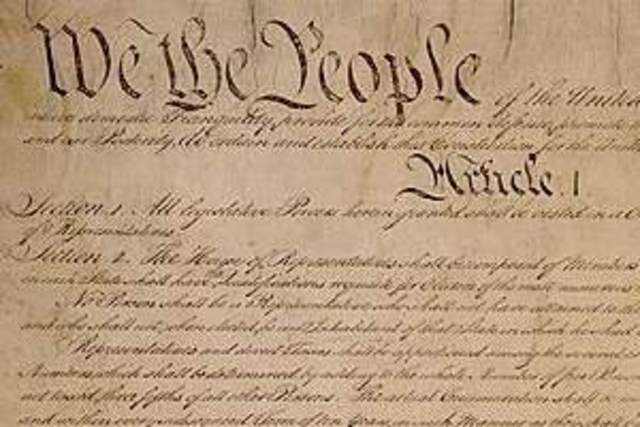 We the People of the United
insure domestic Tranquility, provide for the common defence, promote
and our Posterity, do ordain and establish this Constitution for the United
Article. I.
Section. 1. All legislative Powers herein granted shall be vested in a
of Representatives.
Section. 2. The House of Representatives shall be composed of Members
in each State shall have Qualifications requisite for Electors of the most numerous
No Person shall be a Representative who shall not have attained to the
and who shall not, when elected, be an Inhabitant of that State in which he shall
Representatives and direct Taxes shall be apportioned among the several
Numbers, which shall be determined by adding to the whole Number of free
not taxed, three fifths of all other Persons. The actual Enumeration shall be
and within every subsequent Term of ten Years, in such Manner as they shall